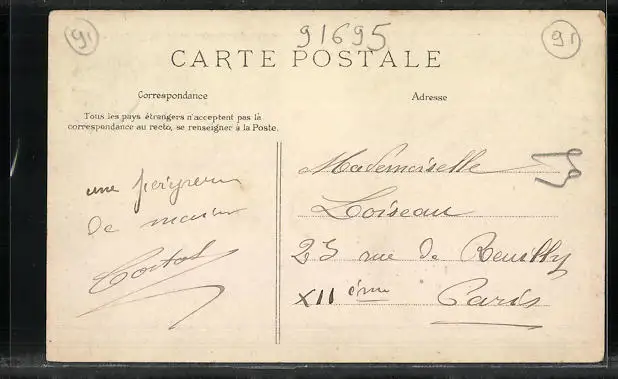 91
91695
91
CARTE POSTALE
Correspondance
Adresse
Tous les pays étrangers n'acceptent pas la
correspondance au recto, se renseigner à la Poste.
une
de
Mademoiselle
Loiseau
25 rue de Reuilly
XII ème Paris